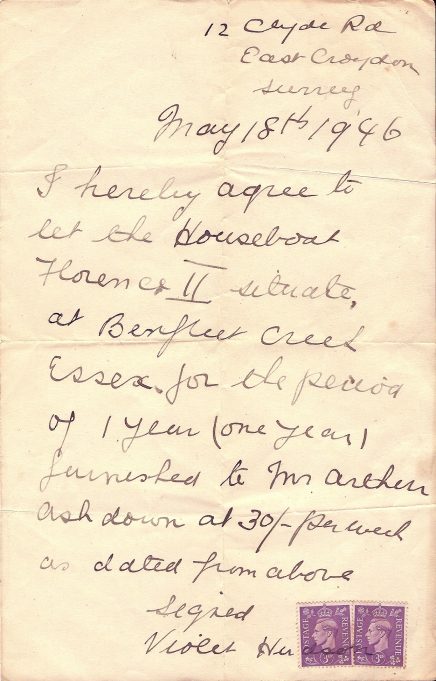 12 Clyde Rd
East Croydon
Surrey
May 18th 1946
I hereby agree to
let the Houseboat
Florence II situate,
at Benfleet Creek
Essex. for the period
of 1 year (one year)
furnished to Mr Arthur
Ashdown at 30/- per week
as dated from above
Signed
Violet Hudson
POSTAGE REVENUE 3D
POSTAGE REVENUE 3D